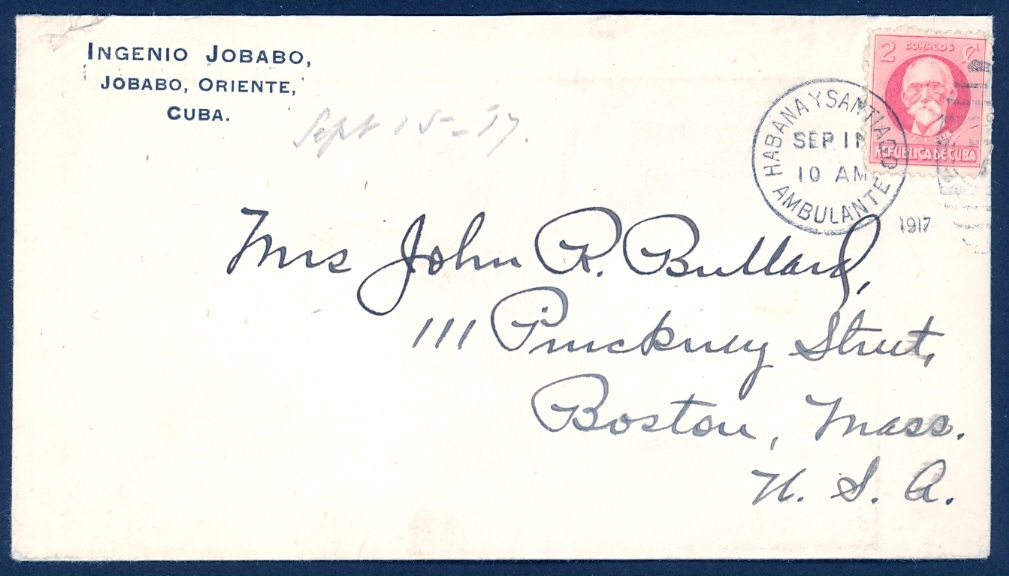 INGENIO JOBABO,
JOBABO, ORIENTE,
CUBA.
Sept 15-
2 CORREOS ¢
REPUBLICA DE CUBA
HABANA Y SANTIAGO
SEP 1
10 AM
AMBULANTE
1917
Mrs John R. Bullard,
111 Pinckney Street,
Boston, Mass.
U. S. A.